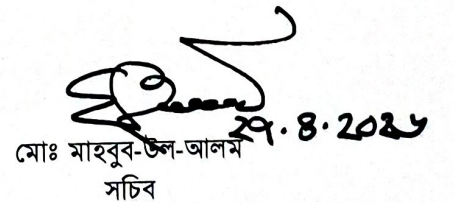 ২৭.৪.২০২৬
মোঃ মাহবুব-উল-আলম
সচিব